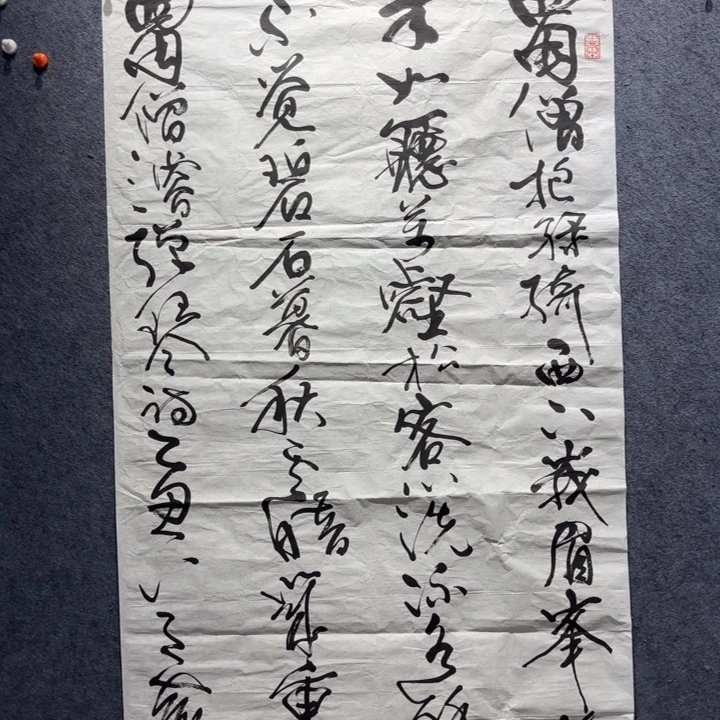 蜀僧抱綠綺西下峨眉峯
手如聽萬壑松客心洗流
不覺碧石暮秋雲暗幾重
蜀僧濬彈琴詩乙丑